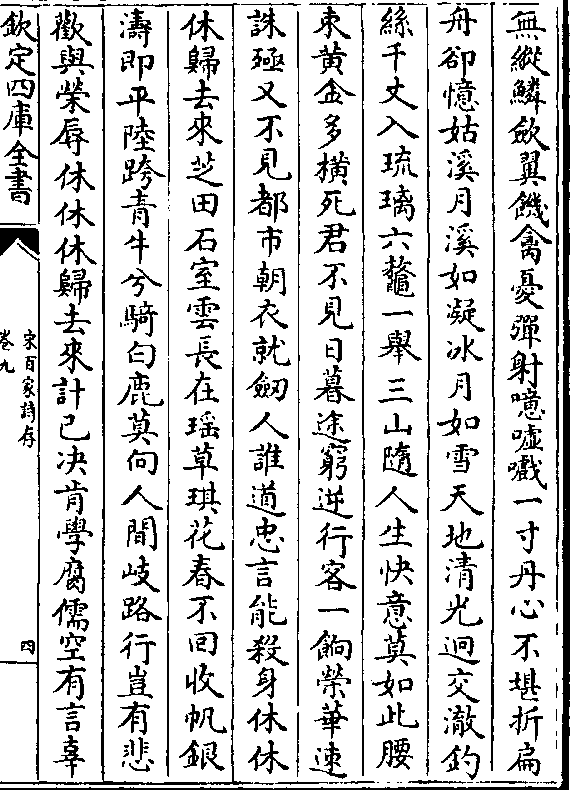 無縱鱗斂翼饑禽憂彈射噫噓嚱一寸丹心不堪折扁
舟卻憶姑溪月溪如凝冰月如雪天地清光迥交澈釣
絲千丈入琉璃六鼇一舉三山隨人生快意莫如此腰
束黄金多横死君不見日暮途窮逆行客一餉榮華速
誅殛又不見都市朝衣就劒人誰道忠言能殺身休休
休歸去來芝田石室雲長在瑶草琪花春不回收帆銀
濤即平陸跨青牛兮騎白鹿莫向人間岐路行豈有悲
歡與榮辱休休休歸去來計已决肯學腐儒空有言辜
欽定四庫全書
宋百家詩存
卷九
四